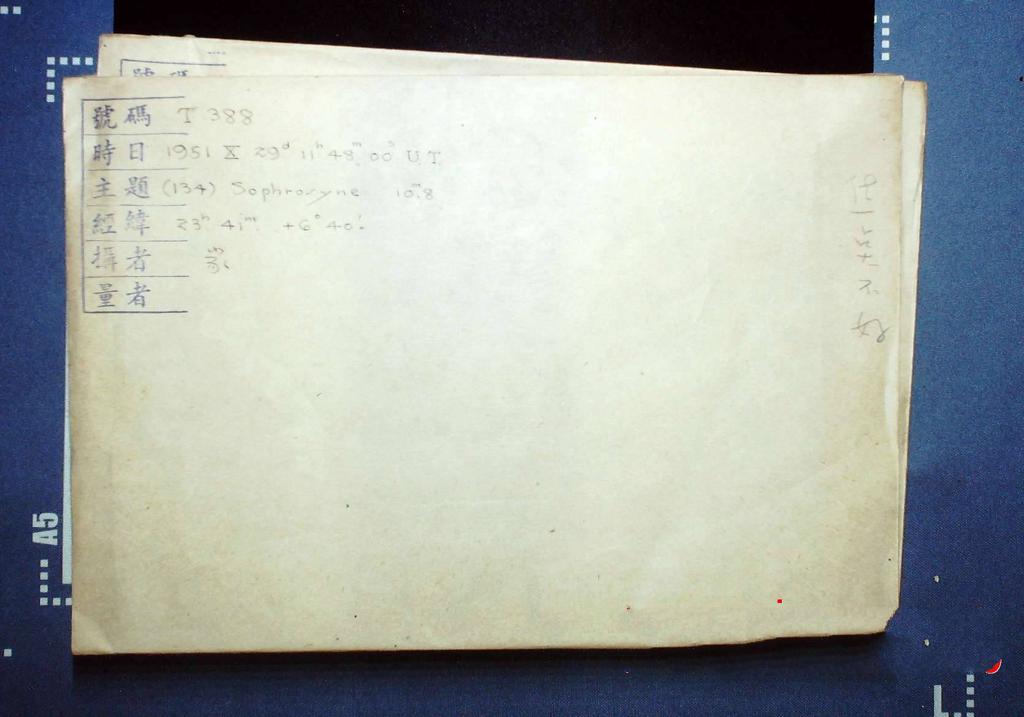 號碼
號碼 T 388
時日 1951 X 29ᵈ 11ʰ 48ᵐ 00ˢ U.T.
主題 (134) Sophrosyne 10ᵐ.8
經緯 23ʰ 41ᵐ +6° 40′
攝者
量者
不好
A5